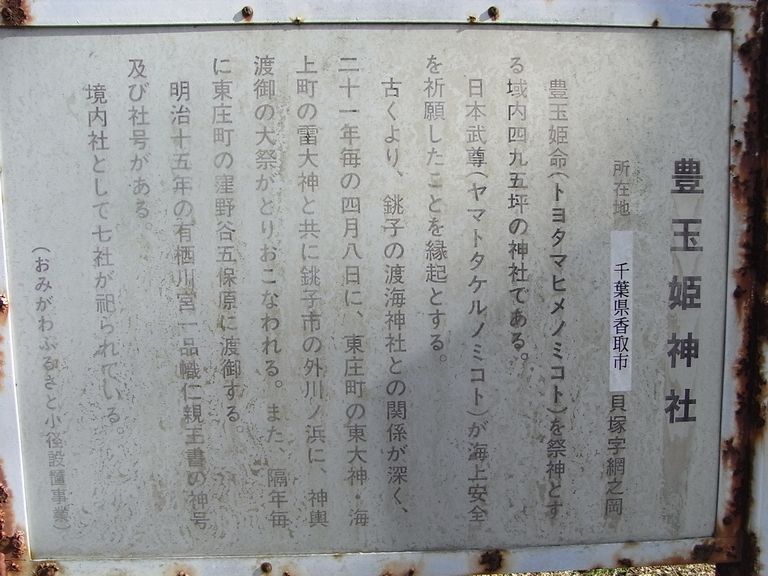 豊玉姫神社
所在地 千葉県香取市 貝塚字網之岡
豊玉姫命(トヨタマヒメノミコト)を祭神とす
る域内四九五坪の神社である。
日本武尊(ヤマトタケルノミコト)が海上安全
を祈願したことを縁起とする。
古くより、銚子の渡海神社との関係が深く、
二十一年毎の四月八日に、東庄町の東大神・海
上町の雷大神と共に銚子市の外川ノ浜に、神輿
渡御の大祭がとりおこなわれる。また 隔年毎
に東庄町の窪野谷五保原に渡御する。
明治十五年の有栖川宮一品幟仁親王書の神号
及び社号がある。
境内社として七社が祀られている。
(おみがわふるさと小径設置事業)